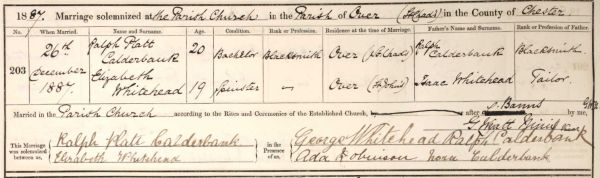 1887. Marriage solemnized at the Parish Church in the Parish of Over (St Chads) in the County of Chester.
No. When Married. Name and Surname. Age. Condition. Rank or Profession. Residence at the time of Marriage. Father's Name and Surname. Rank or Profession of Father.
203 26th December 1887. Ralph Platt Calderbank 20 Bachelor Blacksmith Over (St Chads) Ralph Calderbank Blacksmith
Elizabeth Whitehead 19 Spinster — Over (St Johns) Isaac Whitehead Tailor.
Married in the Parish Church according to the Rites and Ceremonies of the Established Church, by or after Banns by me,
This Marriage was solemnized between us, Ralph Platt Calderbank Elizabeth Whitehead in the Presence of us, George Whitehead Ralph Calderbank
Ada Robinson Nora Calderbank